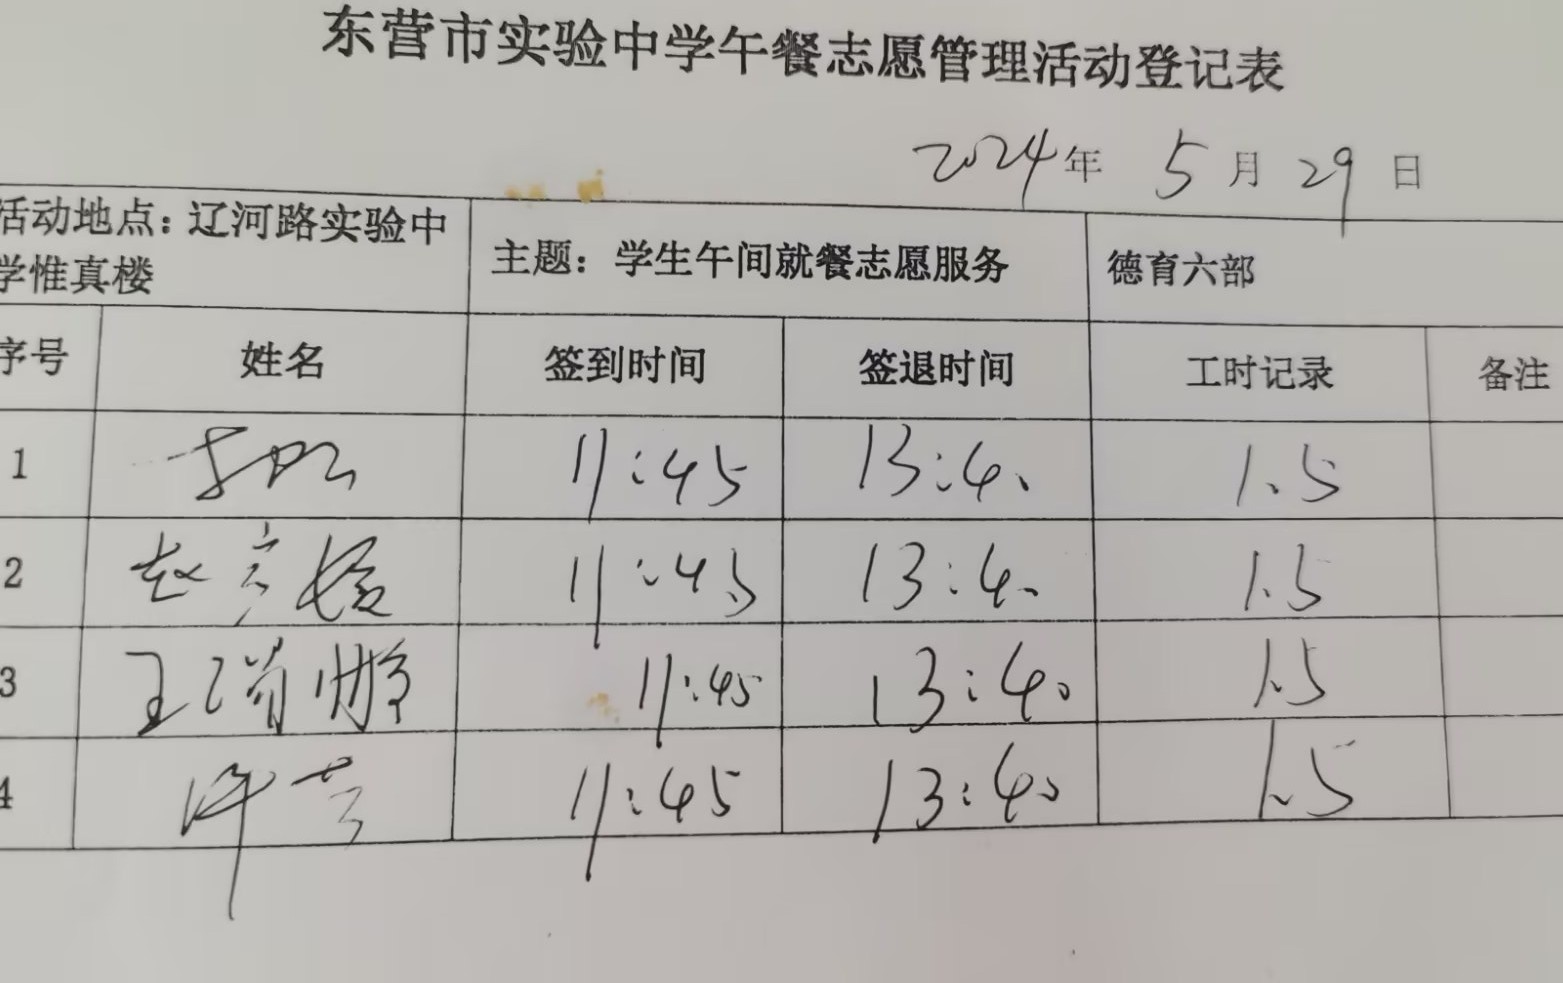 东营市实验中学午餐志愿管理活动登记表
2024年 5月29日
活动地点：辽河路实验中
学惟真楼
主题：学生午间就餐志愿服务
德育六部
序号 姓名 签到时间 签退时间 工时记录 备注
1 11:45 13:40 1.5
2 赵 11:45 13:40 1.5
3 王 11:45 13:40 1.5
4 许 11:45 13:40 1.5